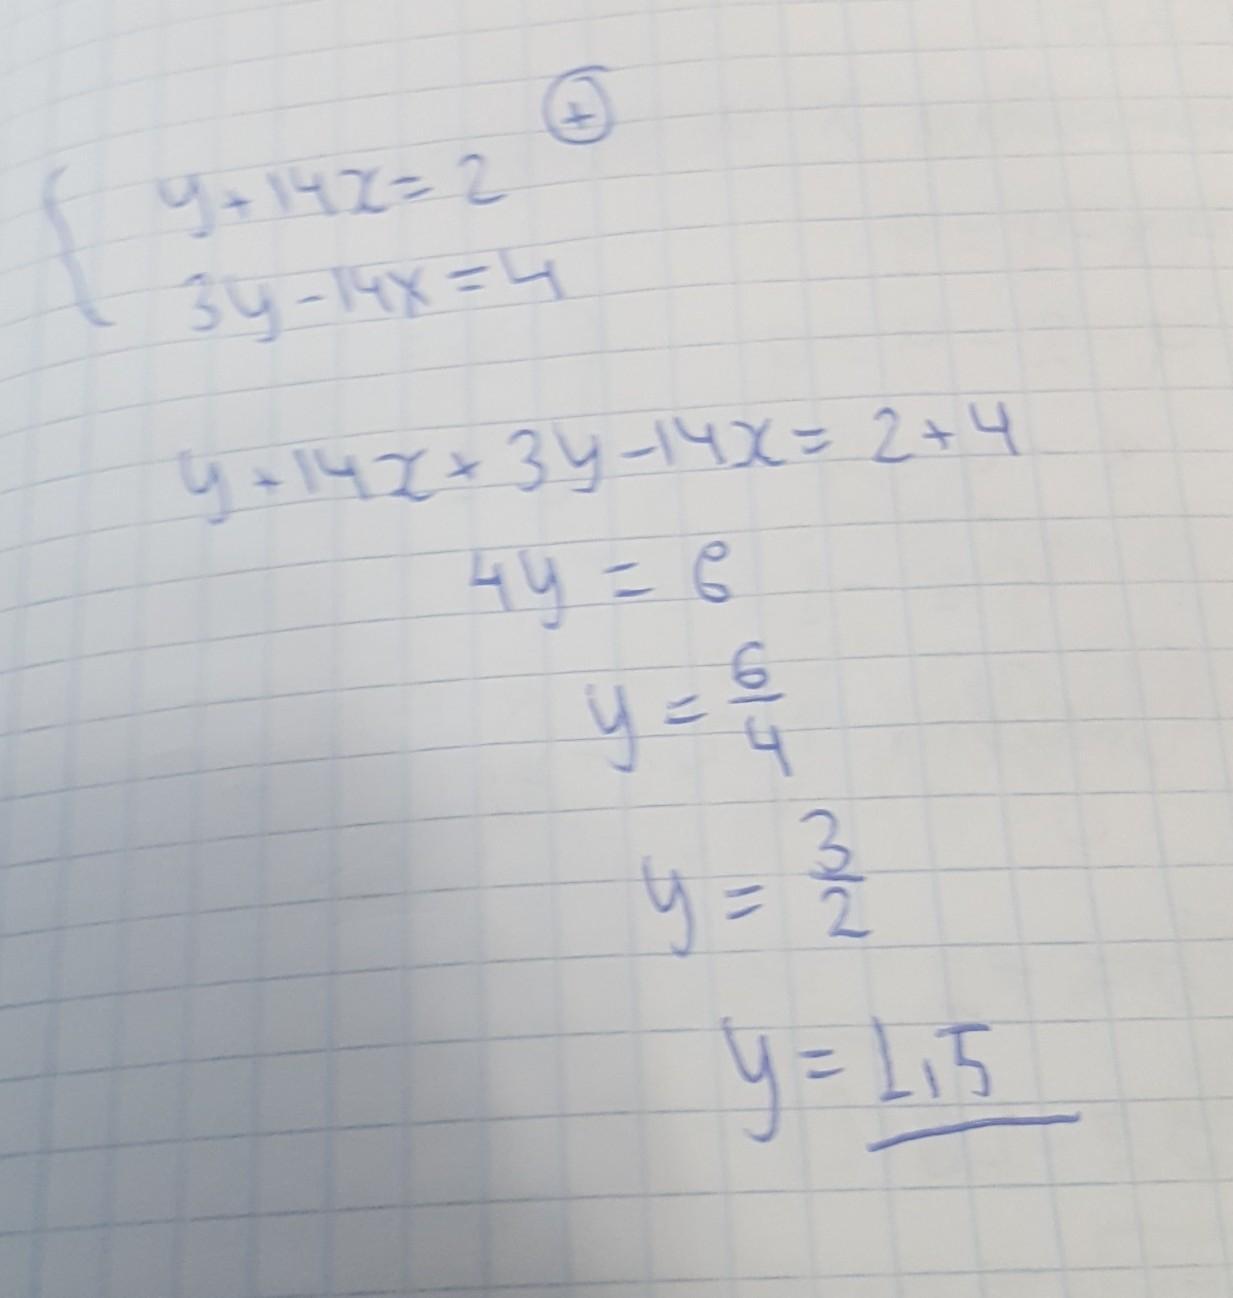 +
y+14x=2
3y-14x=4
y+14x+3y-14x=2+4
4y=6
y=6/4
y=3/2
y=1,5